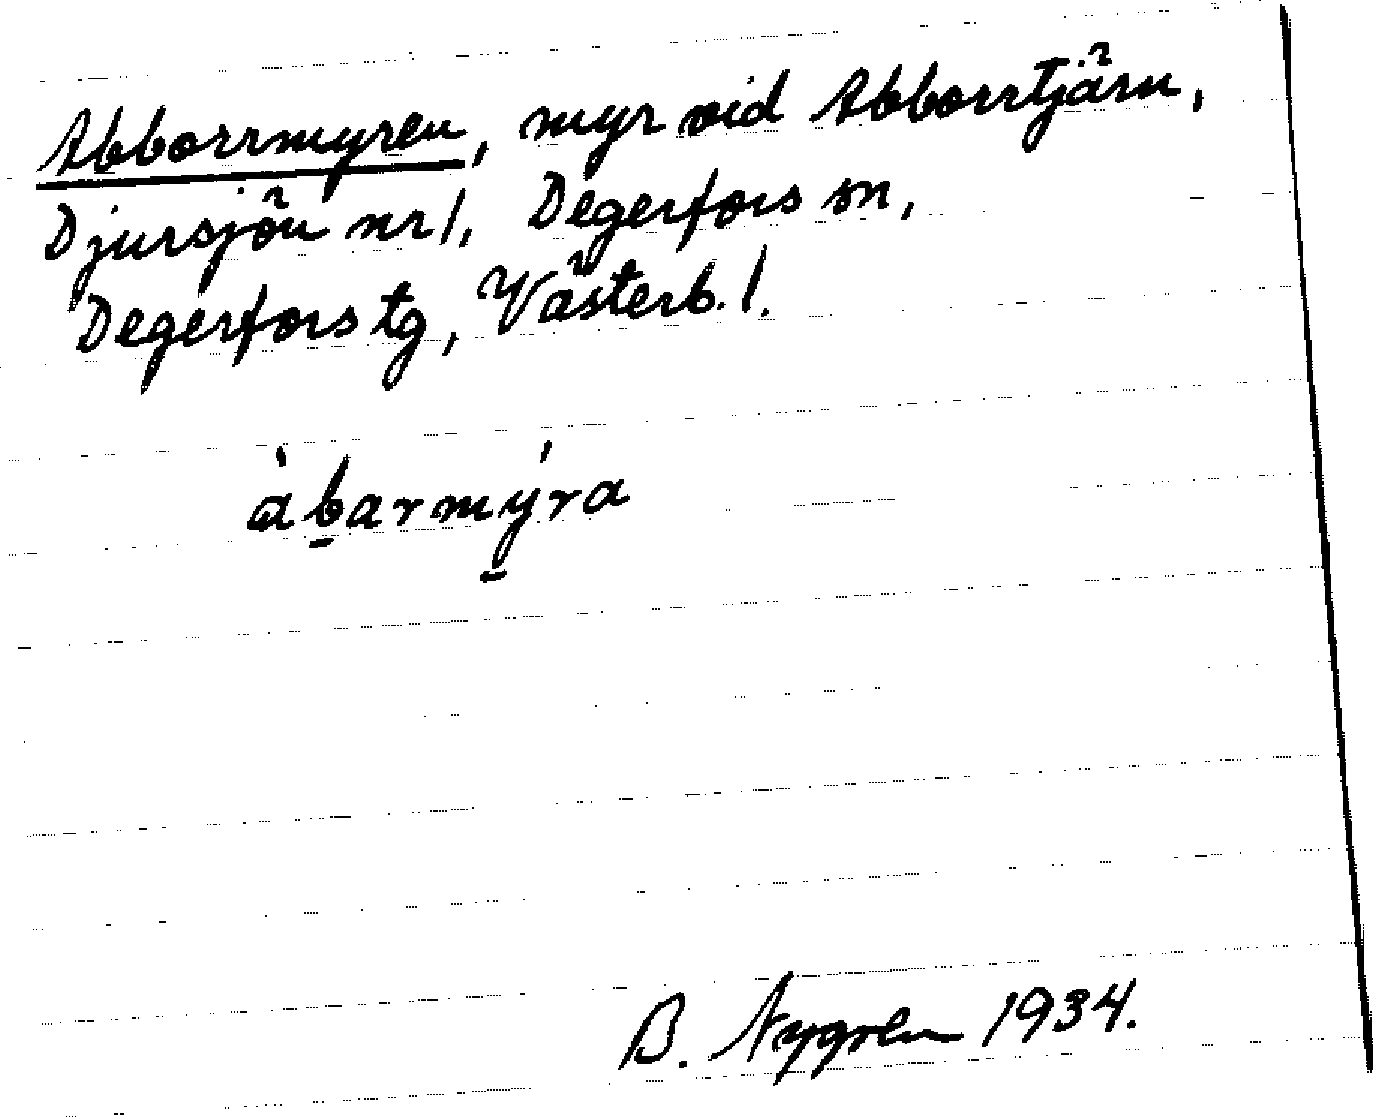 Abborrmyren, myr vid Abborrtjärn,
Djursjön nr 1, Degerfors sn,
Degerfors tg, Västerb. l.
àbarmýra
B. Nygren 1934.